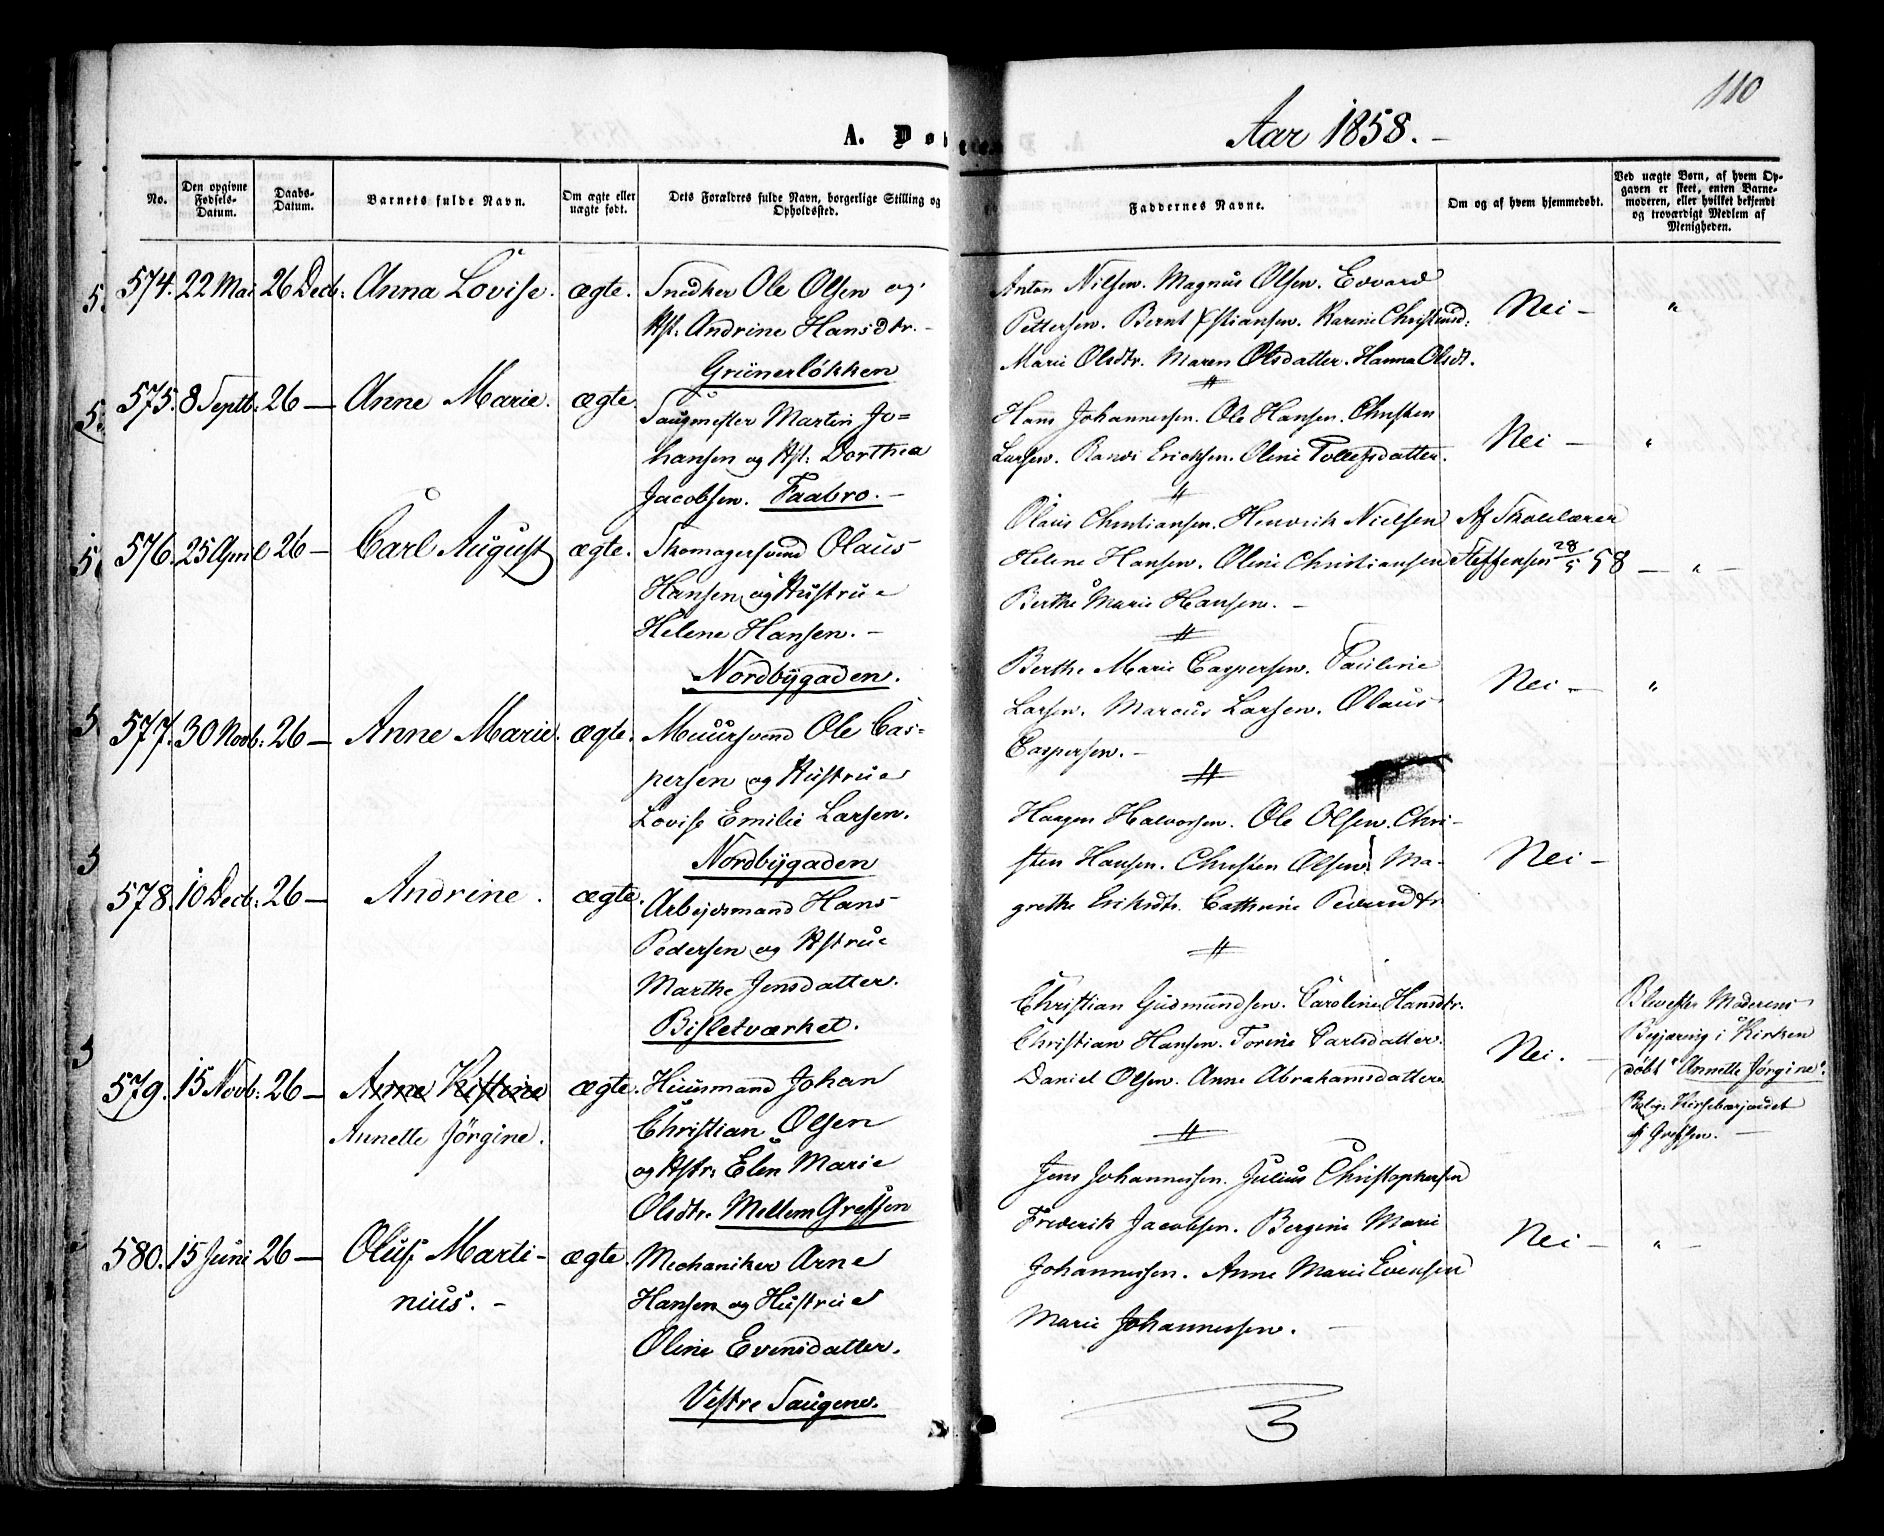 110
A. Døbte.
Aar 1858. –
No.
Den opgivne Fødsels-Datum.
Daabs-Datum.
Barnets fulde Navn.
Om ægte eller uægte født.
Dets Forældres fulde Navn, borgerlige Stilling og Opholdssted.
Faddernes Navne.
Om og af hvem hjemmedøbt.
Ved uægte Børn, af hvem Opgaven er skeet, enten Barnemoderen, eller hvilket bekjendt og troværdigt Medlem af Menigheden.
574. 22 Mai 26 Decb: Anna Lovise. ægte. Snedker Ole Olsen og
Hst. Andrine Hansdtr. –
Grünerløkken
Anton Nilsen. Magnus Olsen. Edvard
Pettersen. Bernt Xstiansen. Karine Christensd:
Marie Olsdtr. Maren Olsdatter. Hanna Olsdt.
Nei – "
575. 8 Septb: 26 — Anne Marie. ægte. Saugmester Martin Jo=
hansen og Hst: Dorthea
Jacobsen. Faabro. –
Hans Johannessen. Ole Hansen. Christen
Larsen. Randi Ericksen. Oline Tollefsdatter.
Nei – "
576. 25 April 26 – Carl August ægte. Skomagersvend Olaus
Hansen og Hustrue
Helene Hansen. –
Nordbygaden.
Olaus Christiansen. Henrich Nielsen
Helene Hansen. Oline Christiansen
Berthe Marie Hansen. –
Af Skolelærer
Steffensen 28/5 58 — " –
577. 30 Novb: 26 – Anne Marie. ægte. Muursvend Ole Cas-
persen og Hustrue
Lovise Emilie Larsen.
Nordbygaden
Berthe Marie Caspersen. Pauline
Larsen. Marcus Larsen. Olaus
Caspersen. –
Nei – "
578. 10 Decb: 26 – Andrine. ægte. Arbejdsmand Hans
Pedersen og Hstrue
Marthe Jensdatter.
Bisletværket.
Haagen Halvorsen. Ole Olsen. Chri-
sten Hansen. Christen Olsen. Ma-
grethe Eriksdtr. Cathrine Pedersdtr
Nei –
579. 15 Novb: 26 – Anne Kistine ægte. Huusmand Johan
Annette Jørgine.
Christian Olsen
og Hstr: Elen Marie
Olsdtr. Mellem Grefsen
Christian Gudmundsen. Caroline Hansdtr.
Christian Hansen. Torine Carlsdatter.
Daniel Olsen. Anne Abrahamsdatter
Nei. –
Blev efter Moderens
Begjæring i Kirken
døbt "Annette Jørgine".
Grefsen. –
580. 15 Juni 26 – Oluf Marti-
nius. –
ægte. Mechaniker Arne
Hansen og Hustrue
Oline Evensdatter.
Vestre Saugene.
Jens Johannessen. Julius Christophersen
Frederik Jacobsen. Bergine Marie
Johannessen. Anne Marie Evensen
Marie Johannessen. –
Nei – " –